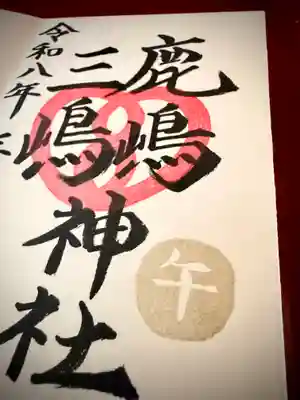 鹿嶋
三嶋
神社
令和八年
午